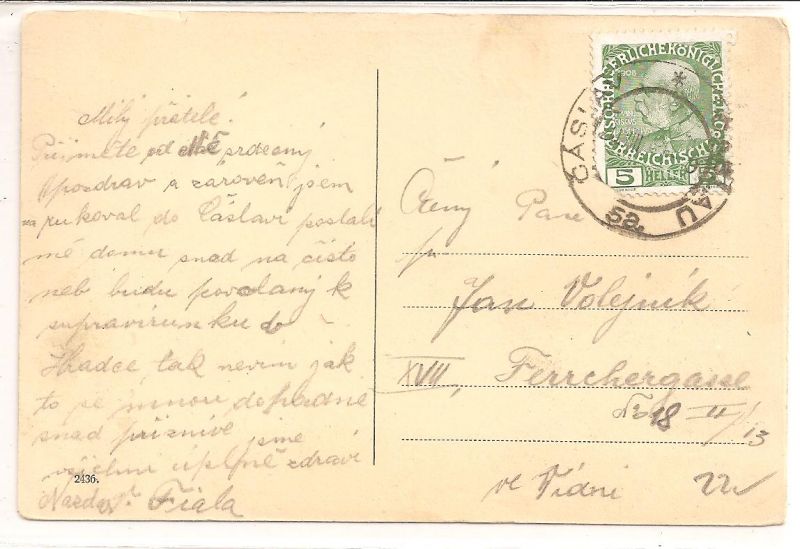 Milý přátelé!
Přijměte od Mně srdečný
pozdrav a zároveň jsem
na rukoval do Čáslavi poslali
mě domu snad na čisto
neb budu povolaný k
supravirunku do
Hradce tak nevim jak
to se mnou dopadne
snad příznivě jsme
všichni úplně zdraví
Nazdar! Fiala
2436.
1908
5 HELLER
ČÁSLAV *
5a.
Ctěný Pan
Jan Volejník
XVII, Ferrchergasse
No 18 II/13
ve Vídni